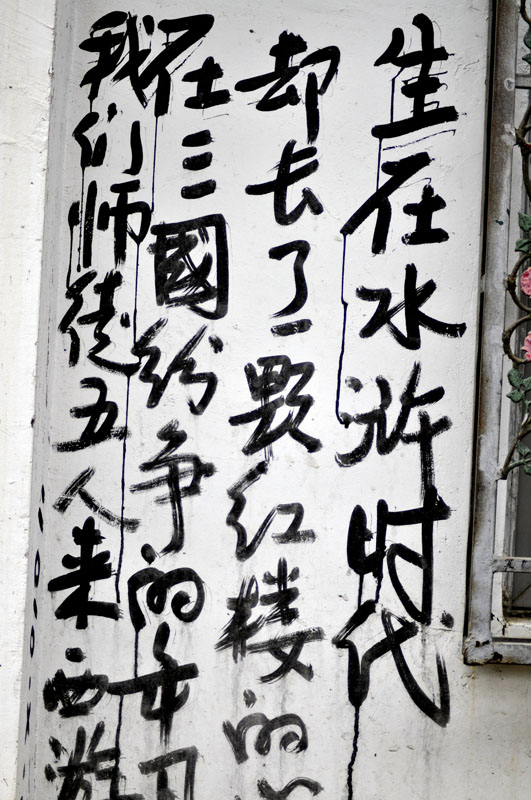 生在水浒时代
却长了一颗红楼的
在三國纷争的女
我们师徒五人来西游